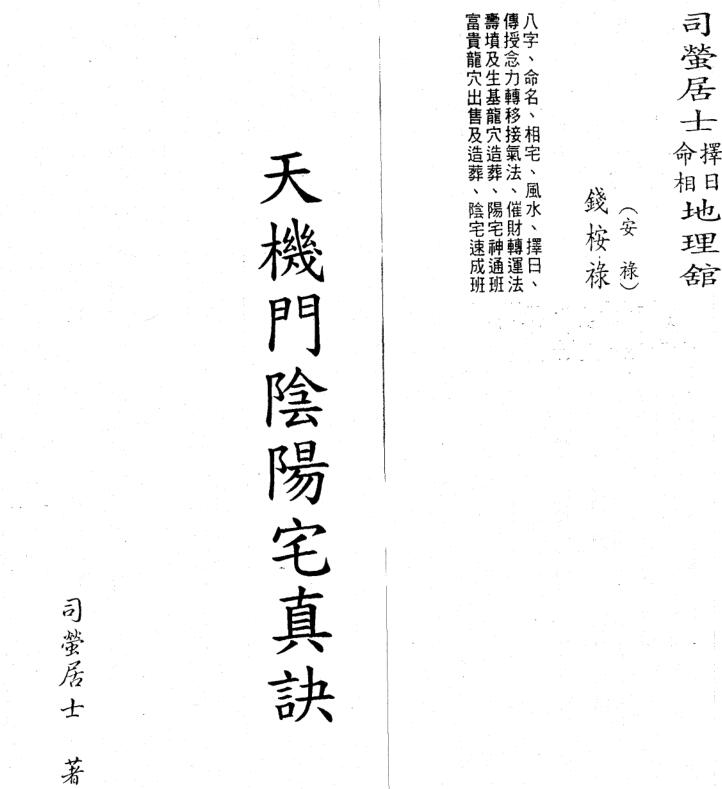 司螢居士擇日命相地理舘
（安祿）
錢桉祿
八字、命名、相宅、風水、擇日、
傳授念力轉移接氣法、催財轉運法
壽墳及生基龍穴造葬、陽宅神通班
富貴龍穴出售及造葬、陰宅速成班
天機門陰陽宅真訣
司螢居士 著